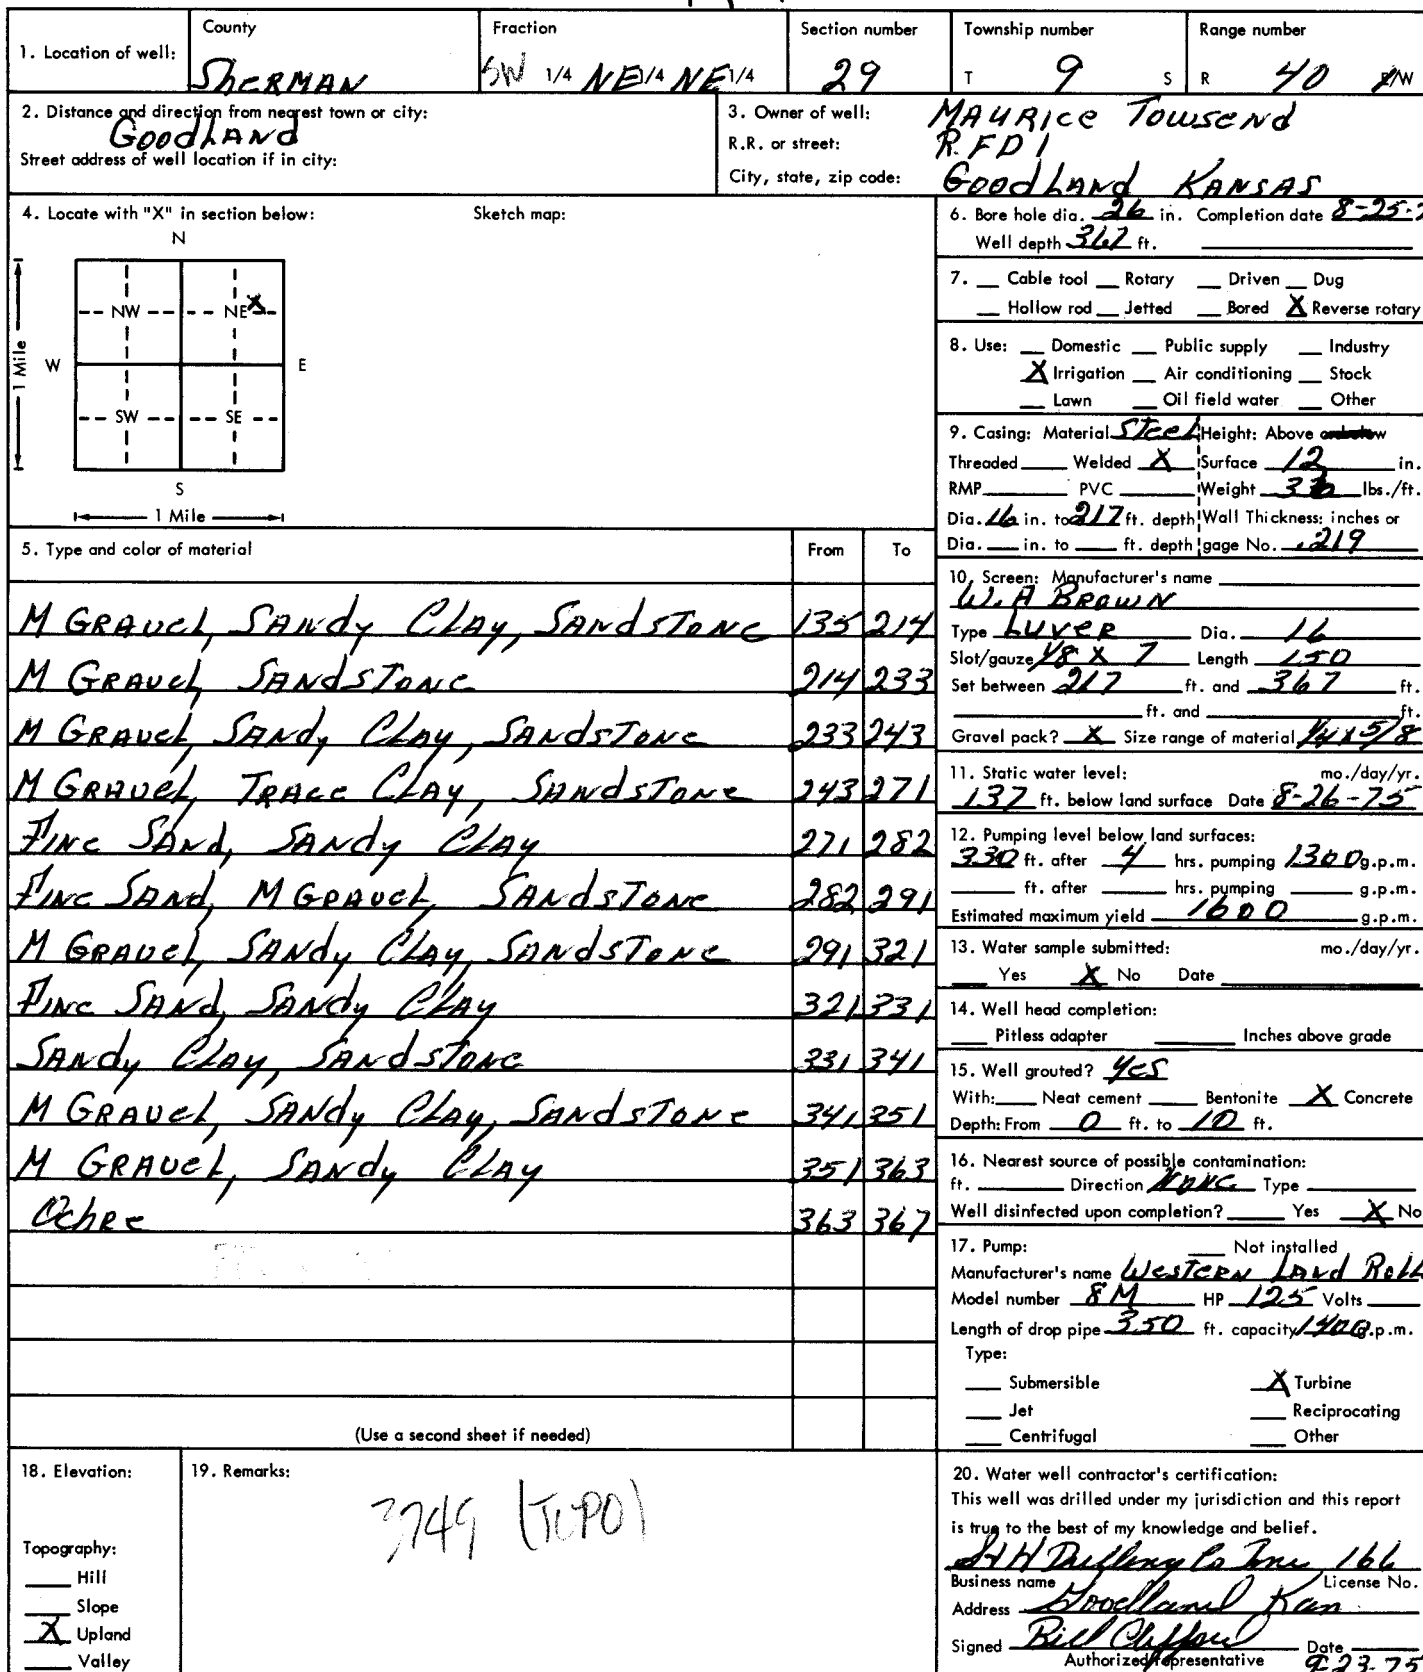 County Fraction Section number Township number Range number
1. Location of well: Sherman SW 1/4 NE 1/4 NE 1/4 29 T 9 S R 40 E/W
2. Distance and direction from nearest town or city:
Goodland
Street address of well location if in city:
3. Owner of well: Maurice Towsend
R.R. or street: R.FD 1
City, state, zip code: Goodland Kansas
4. Locate with "X" in section below: Sketch map:
N
NW NE X
W E
1 Mile
SW SE
S
1 Mile
5. Type and color of material From To
M Gravel, Sandy Clay, Sandstone 135 214
M Gravel, Sandstone 214 233
M Gravel, Sandy Clay, Sandstone 233 243
M Gravel, Trace Clay, Sandstone 243 271
Fine Sand, Sandy Clay 271 282
Fine Sand, M Gravel, Sandstone 282 291
M Gravel, Sandy Clay, Sandstone 291 321
Fine Sand, Sandy Clay 321 331
Sandy Clay, Sandstone 331 341
M Gravel, Sandy Clay, Sandstone 341 351
M Gravel, Sandy Clay 351 363
Ochre 363 367
(Use a second sheet if needed)
6. Bore hole dia. 26 in. Completion date 8-25-7
Well depth 367 ft.
7. Cable tool Rotary Driven Dug
Hollow rod Jetted Bored X Reverse rotary
8. Use: Domestic Public supply Industry
X Irrigation Air conditioning Stock
Lawn Oil field water Other
9. Casing: Material Steel Height: Above or below
Threaded Welded X Surface 12 in.
RMP PVC Weight lbs./ft.
Dia. 16 in. to 217 ft. depth Wall Thickness: inches or
Dia. in. to ft. depth gage No. .219
10. Screen: Manufacturer's name
W.A Brown
Type Luver Dia. 16
Slot/gauze 1/8 X 7 Length 150
Set between 217 ft. and 367 ft.
ft. and ft.
Gravel pack? X Size range of material 1/4 x 5/8
11. Static water level: mo./day/yr.
137 ft. below land surface Date 8-26-75
12. Pumping level below land surfaces:
330 ft. after 4 hrs. pumping 1300 g.p.m.
ft. after hrs. pumping g.p.m.
Estimated maximum yield 1600 g.p.m.
13. Water sample submitted: mo./day/yr.
Yes X No Date
14. Well head completion:
Pitless adapter Inches above grade
15. Well grouted? Yes
With: Neat cement Bentonite X Concrete
Depth: From 0 ft. to 10 ft.
16. Nearest source of possible contamination:
ft. Direction None Type
Well disinfected upon completion? Yes X No
17. Pump: Not installed
Manufacturer's name Western Land Roll
Model number 8M HP 125 Volts
Length of drop pipe 350 ft. capacity 1400 g.p.m.
Type:
Submersible X Turbine
Jet Reciprocating
Centrifugal Other
18. Elevation:
Topography:
Hill
Slope
X Upland
Valley
19. Remarks:
3749 (TOPO)
20. Water well contractor's certification:
This well was drilled under my jurisdiction and this report
is true to the best of my knowledge and belief.
Co Inc 166
Business name License No.
Address Goodland Kan
Signed Bill Clifford Date
Authorized representative 9-23-75